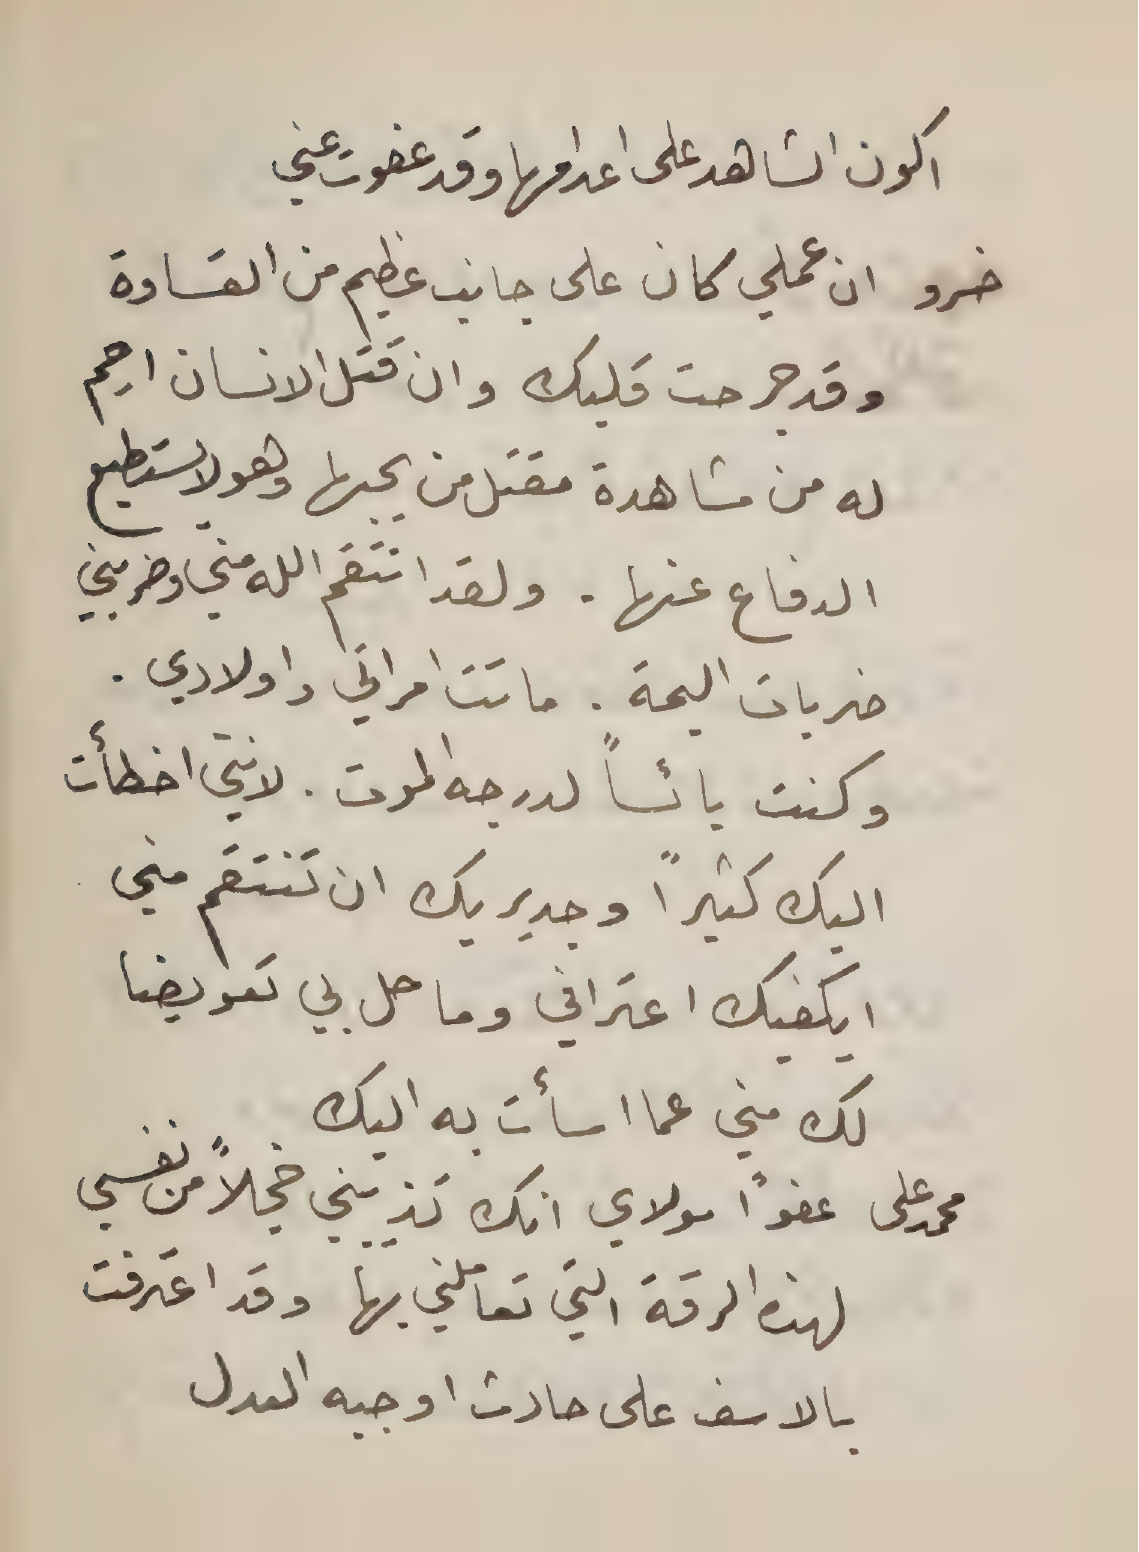 اكون الشاهد على اعدامها وقد عفوت عني
خسرو ان عملي كان على جانب عظيم من القساوة
وقد جرحت قلبك وان قتل الانسان ارحم
له من مشاهدة مقتل من يحبها وهو لا يستطيع
الدفاع عنها . ولقد انتقم الله مني وضربني
ضربات اليمة . ماتت امراتي واولادي .
وكنت يائساً لدرجه الموت . لانني اخطأت
اليك كثيراً وجدير بك ان تنتقم مني
ايكفيك اعترافي وما حل بي تعويضا
لك مني عما اسأت به اليك
محمد علي عفوًا مولاي انك تذيبني خجلاً من نفسي
لهذه الرقة التي تعاملني بها وقد اعترفت
بالاسف على حادث اوجبه العدل